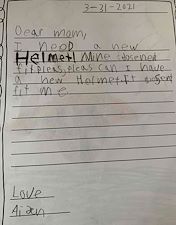 3-31-2021
Dear mom,
I need a new
Helmet! Mine doesent
fit pleas, pleas can I have
a new Helmet. It dosent
fit me
Love
Aidan